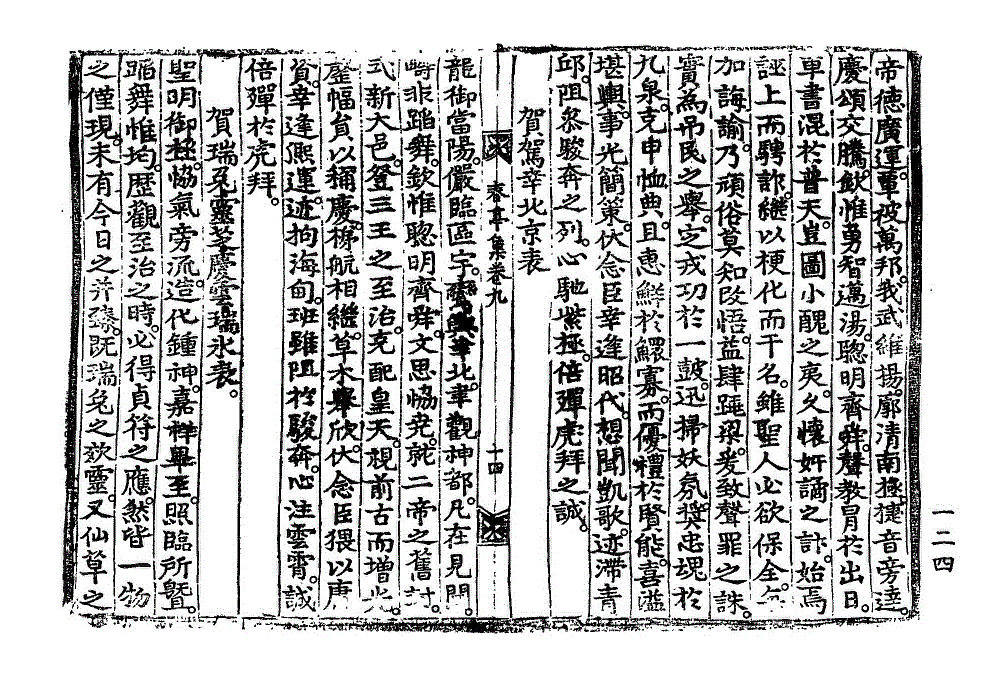 帝德廣運。葷被萬邦。我武維揚。廓清南極。捷音旁達。
慶頌交騰。欽惟勇智邁湯。聰明齊舜。聲敎冐於出日。
車書混於普天。豈圖小醜之夷。久懷奸譎之計。始焉
誣上而騁詐。繼以梗化而干名。雖聖人必欲保全。
加誨諭。乃頑俗莫知改悟。益肆踵梁。爰致聲罪之誅。
實爲吊民之擧。定戎功於一鼓。迅掃妖氛。奬忠魂於
九泉。克申恤典。且惠鮮於鰥寡。而優禮於賢能。喜溢
堪輿。事光簡策。伏念臣幸逢昭代。想聞凱歌。迹滯靑
邱。阻叅駿奔之列。心馳紫極。倍殫虎拜之誠。
賀駕幸北京表
春亭集卷九
十四
龍御當陽。儼臨區宇。鑾輿幸北。聿觀神都。凡在見聞。
疇非蹈舞。欽惟聰明齊舜。文思恊堯。就二帝之舊封。
式新大邑。登三王之至治。克配皇天。視前古而增光。
壓幅員以稱慶。梯航相繼。草木擧欣。伏念臣猥以庸
資。幸逢熙運。迹拘海甸。班雖阻於駿奔。心注雲霄。誠
倍殫於虎拜。
賀瑞兎靈芝慶雲瑞氷表。
聖明御極。恊氣旁流。造化鍾神。嘉祥畢至。照臨所曁。
蹈舞惟均。歷觀至治之時。必得貞符之應。然皆一物
之僅現。未有今日之幷臻。旣瑞兎之效靈。又仙草之
一二四